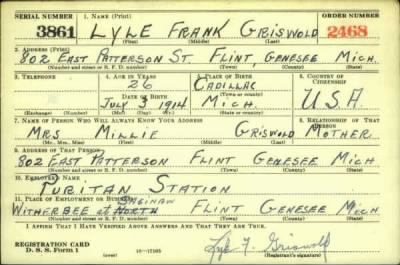 SERIAL NUMBER 1. NAME (Print) ORDER NUMBER
3861 LYLE FRANK GRISWOLD 2468
(First) (Middle) (Last)
2. ADDRESS (Print)
802 EAST PATTERSON ST. FLINT, GENESEE MICH.
(Number and street or R. F. D. number) (Town) (County) (State)
3. TELEPHONE 4. AGE IN YEARS 5. PLACE OF BIRTH 6. COUNTRY OF CITIZENSHIP
26 CADILLAC
(Town or county)
DATE OF BIRTH
JULY 3 1914 MICH. U.S.A.
(Exchange) (Number) (Mo.) (Day) (Yr.) (State or country)
7. NAME OF PERSON WHO WILL ALWAYS KNOW YOUR ADDRESS 8. RELATIONSHIP OF THAT PERSON
MRS MILLIE GRISWOLD MOTHER
(Mr., Mrs., Miss) (First) (Middle) (Last)
9. ADDRESS OF THAT PERSON
802 EAST PATTERSON FLINT GENESEE MICH
(Number and street or R. F. D. number) (Town) (County) (State)
10. EMPLOYER'S NAME
PURITAN STATION
11. PLACE OF EMPLOYMENT OR BUSINESS
SAGINAW
WITHERBEE at NORTH FLINT GENESEE MICH
(Number and street or R. F. D. number) (Town) (County) (State)
I AFFIRM THAT I HAVE VERIFIED ABOVE ANSWERS AND THAT THEY ARE TRUE.
REGISTRATION CARD
D. S. S. Form 1 (over) Lyle F. Griswold